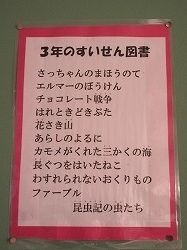 ３年のすいせん図書
さっちゃんのまほうのて
エルマーのぼうけん
チョコレート戦争
はれときどきぶた
花さき山
あらしのよるに
カモメがくれた三かくの海
長ぐつをはいたねこ
わすれられないおくりもの
ファーブル
昆虫記の虫たち